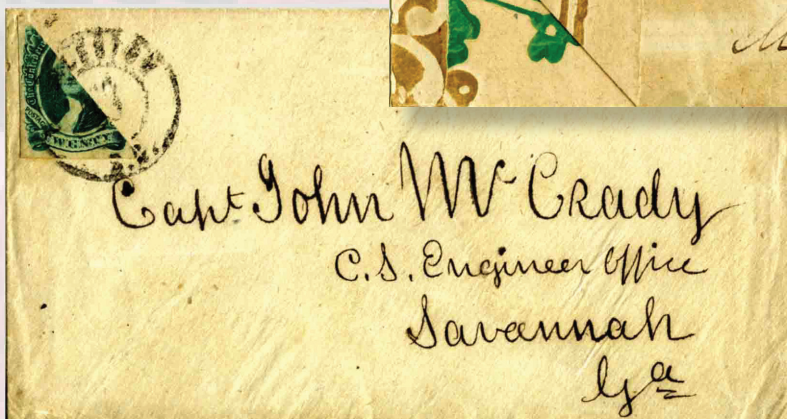 TWENTY
Capt John McCrady
C. S. Engineer Office
Savannah
Ga